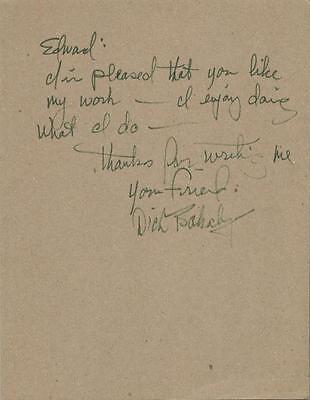 Edward:
I'm pleased that you like
my work — I enjoy doing
what I do —
thanks for writing me
Your friend:
Dick